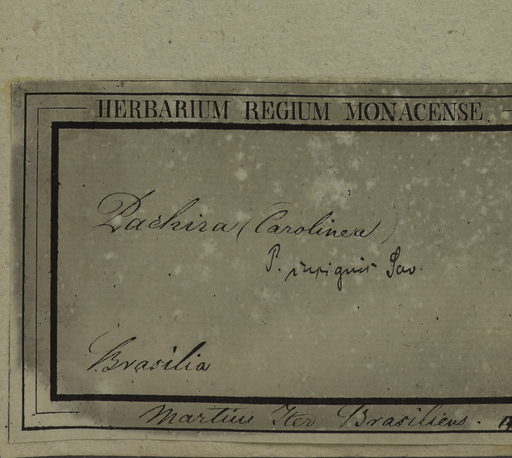 HERBARIUM REGIUM MONACENSE
Pachira (Carolinea)
P. insignis Sav.
Brasilia
Martius Iter Brasiliens.